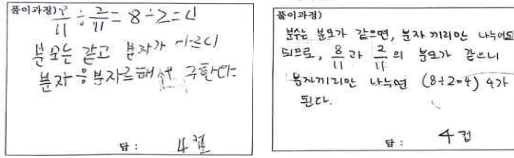 풀이과정)
÷ 2/11 = 8÷2=
분모는 같고 분자가
분자÷분자를해서 구한다.
답: 4
풀이과정)
분수는 분모가 같으면, 분자 끼리만 나누어도
되므로, 8/11 과 2/11 의 분모가 같으니
분자끼리만 나누면 (8÷2=4) 4가
된다.
답: 4컵